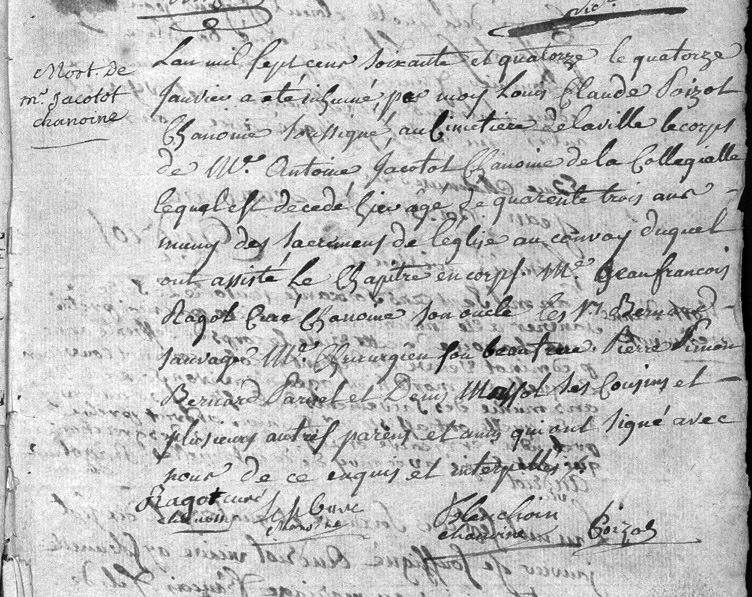 Mort de
mr. Jacotot
chanoine
Lan mil sept cens soixante et quatorze le quatorze
Janvier a eté inhumé, par moy Louis Claude Poizot
Chanoine soussigné, au Cimetiere de la ville le corps
de Mre. Antoine Jacotot Chanoine de la Collegialle
lequel est decedé hier âge de quarente trois ans
muny des sacremens de l'église au convoy duquel
ont assisté Le Chapitre en corps. Mre Jean francois
Ragot Curé Chanoine son oncle les Srs Bernard
Sauvageo Me. Chirurgien son beaufrere. Pierre Simon
Bernard Parvet et Denis Massot ses Cousins et
plusieurs autres parens et amis qui ont signé avec
nous de ce enquis et interpellés
Ragot curé
chanoine
Lefebvre
chanoine
chanoine
Poizot